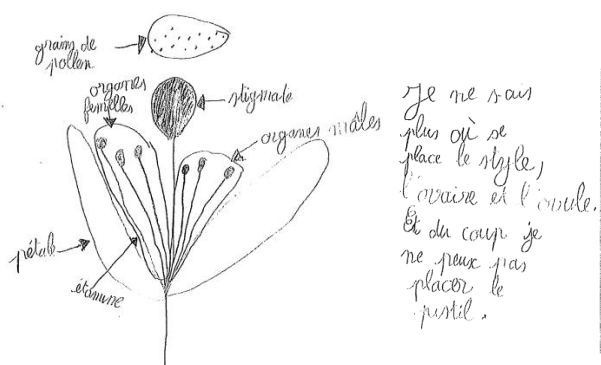 grains de
pollen
organes
femelles
stigmate
organes mâles
pétale
étamine
Je ne sais
plus où se
place le style,
l'ovaire et l'ovule.
Et du coup je
ne peux pas
placer le
pistil.